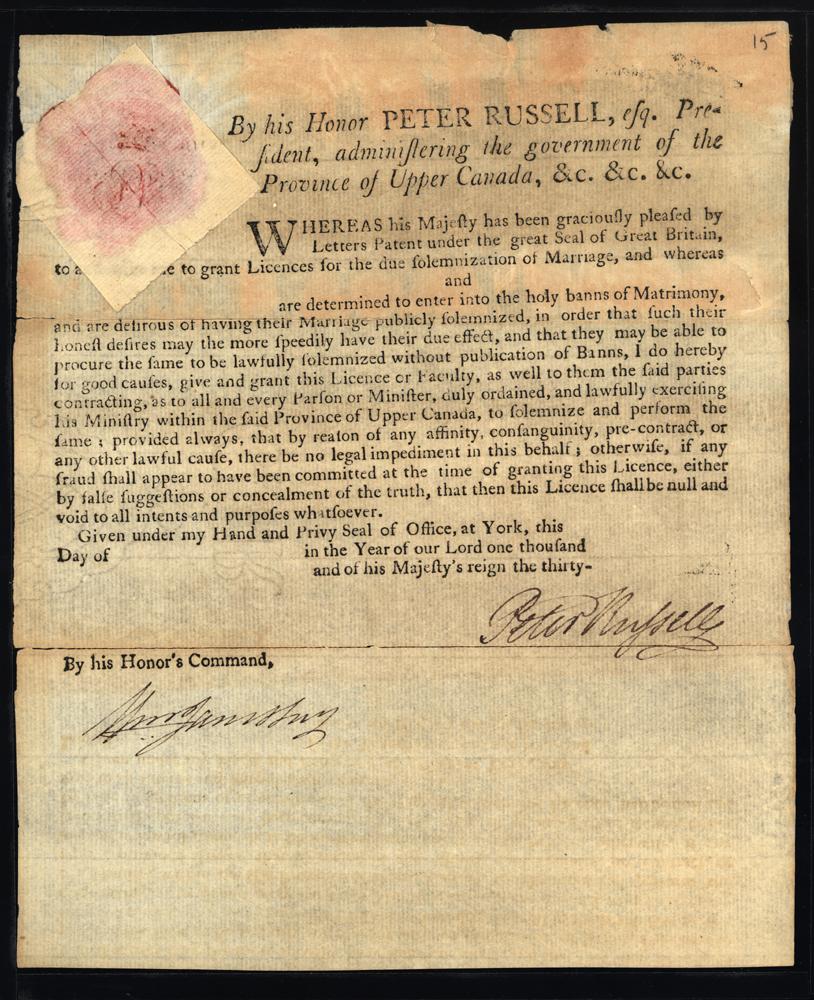 15
By his Honor PETER RUSSELL, eſq. Pre-
ſident, adminiſtering the government of the
Province of Upper Canada, &c. &c. &c.
WHEREAS his Majeſty has been graciouſly pleaſed by
Letters Patent under the great Seal of Great Britain,
to me to grant Licences for the due ſolemnization of Marriage, and whereas
and
are determined to enter into the holy banns of Matrimony,
and are deſirous of having their Marriage publicly ſolemnized, in order that ſuch their
honeſt deſires may the more ſpeedily have their due effect, and that they may be able to
procure the ſame to be lawfully ſolemnized without publication of Banns, I do hereby
for good cauſes, give and grant this Licence or Faculty, as well to them the ſaid parties
contracting, as to all and every Parſon or Miniſter, duly ordained, and lawfully exerciſing
his Miniſtry within the ſaid Province of Upper Canada, to ſolemnize and perform the
ſame ; provided always, that by reaſon of any affinity, conſanguinity, pre-contract, or
any other lawful cauſe, there be no legal impediment in this behalf ; otherwiſe, if any
fraud ſhall appear to have been committed at the time of granting this Licence, either
by falſe ſuggeſtions or concealment of the truth, that then this Licence ſhall be null and
void to all intents and purpoſes whatſoever.
Given under my Hand and Privy Seal of Office, at York, this
Day of in the Year of our Lord one thouſand
and of his Majeſty's reign the thirty-
Peter Ruſsell
By his Honor's Command,